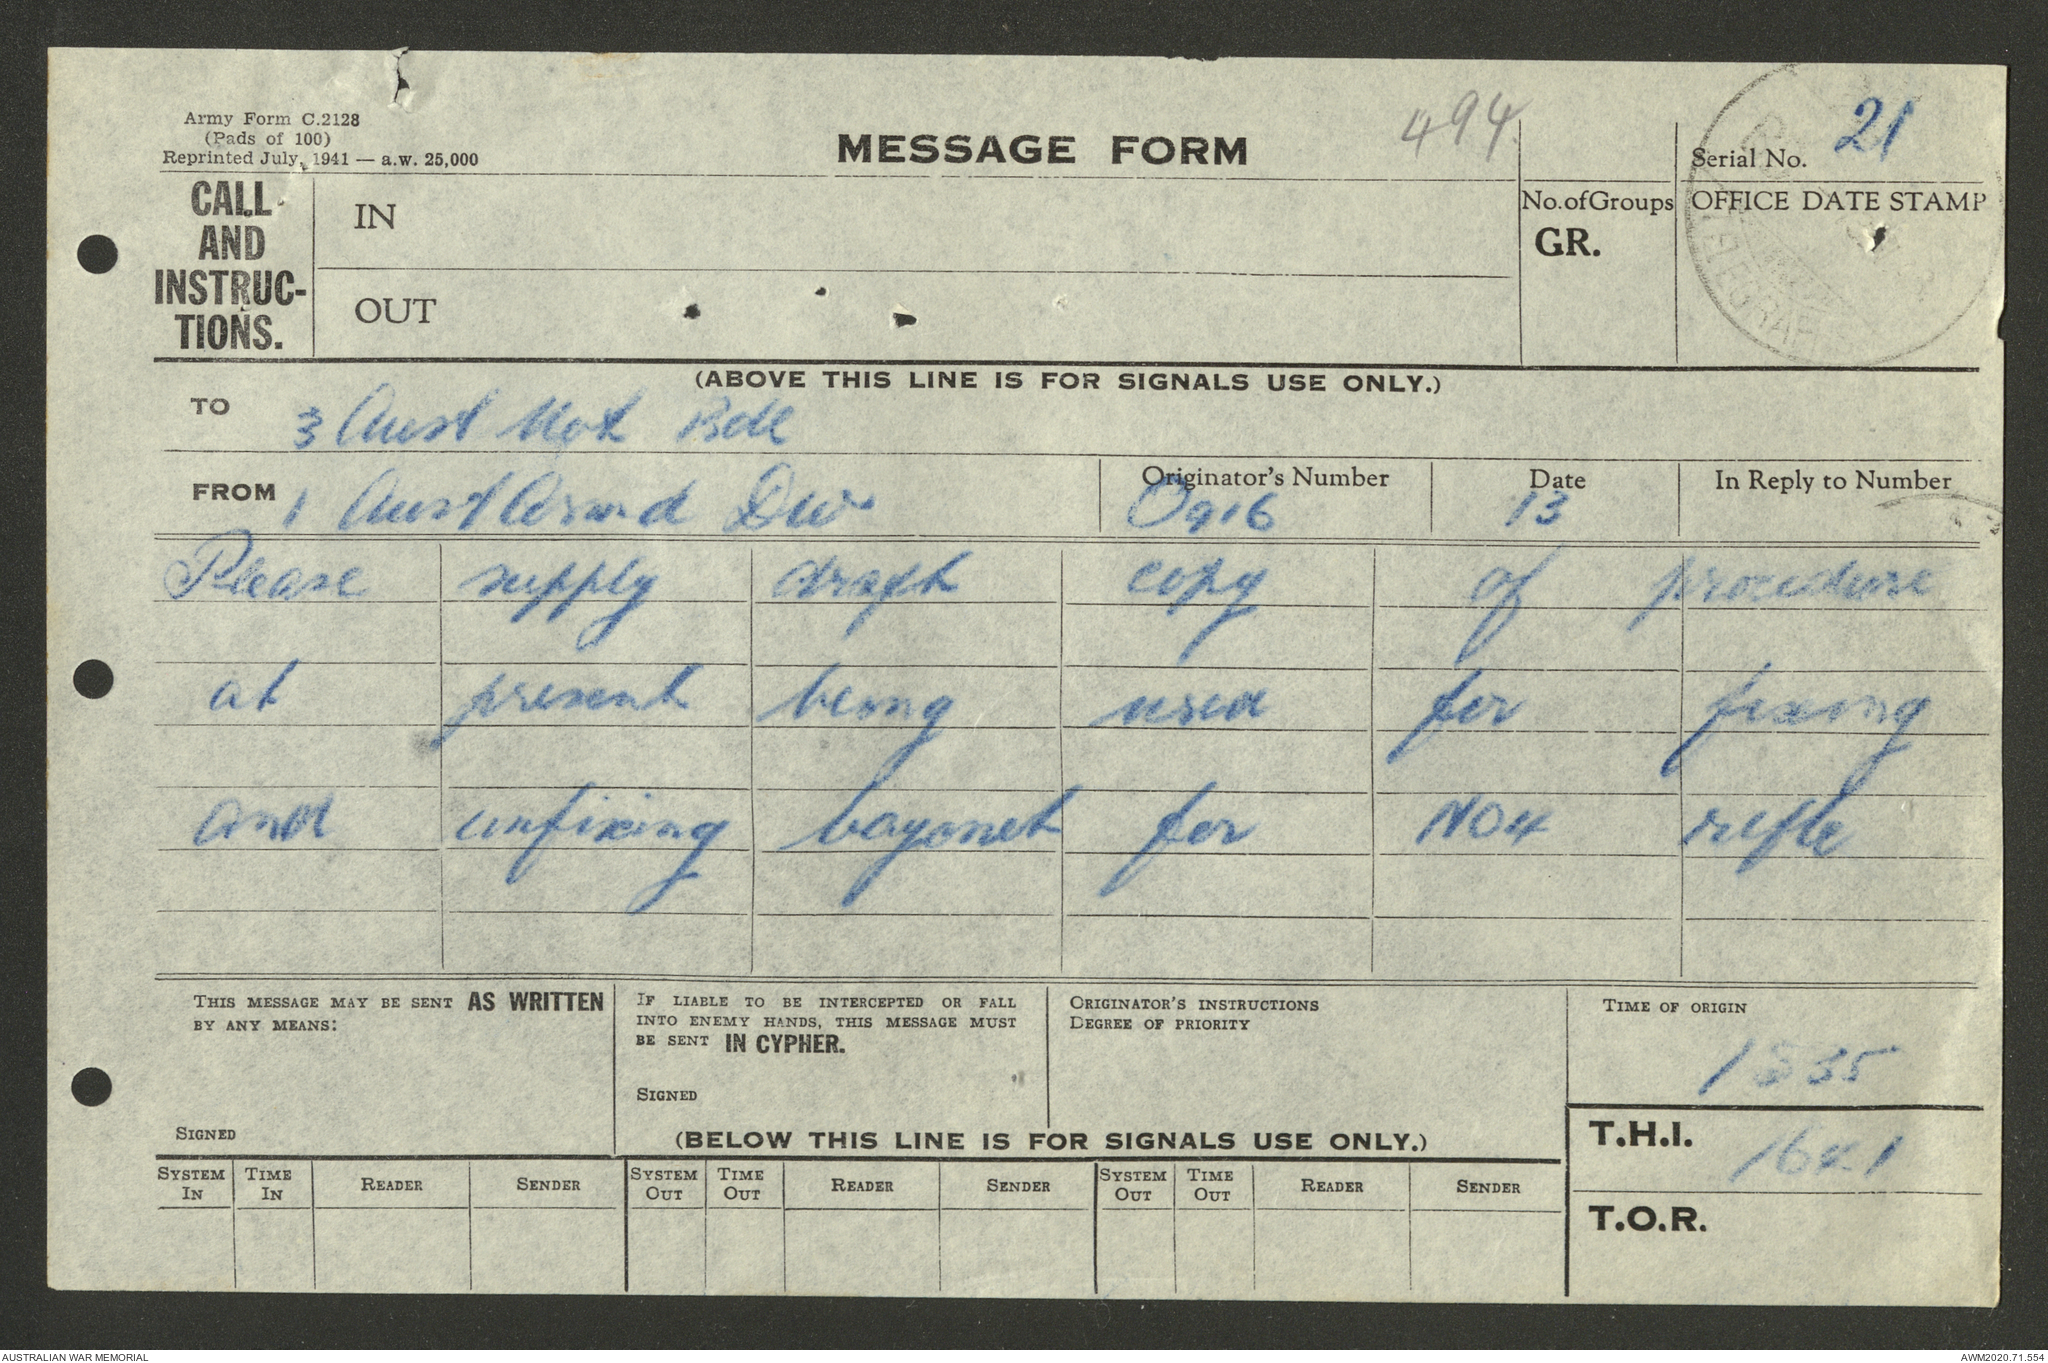 Army Form C.2128
(Pads of 100)
Reprinted July, 1941 — a.w. 25,000
MESSAGE FORM
494
Serial No. 21
CALL AND INSTRUC-TIONS.
IN
OUT
No. of Groups
GR.
OFFICE DATE STAMP
(ABOVE THIS LINE IS FOR SIGNALS USE ONLY.)
TO 3 Aust Mot Bde
FROM 1 Aust Armd Div
Originator's Number O916
Date 13
In Reply to Number
Please supply draft copy of procedure
at present being used for fixing
and unfixing bayonet for NO4 rifle
THIS MESSAGE MAY BE SENT AS WRITTEN
BY ANY MEANS:
SIGNED
IF LIABLE TO BE INTERCEPTED OR FALL
INTO ENEMY HANDS, THIS MESSAGE MUST
BE SENT IN CYPHER.
SIGNED
ORIGINATOR'S INSTRUCTIONS
DEGREE OF PRIORITY
TIME OF ORIGIN
1535
(BELOW THIS LINE IS FOR SIGNALS USE ONLY.)
T.H.I.
T.O.R.
SYSTEM IN TIME IN READER SENDER SYSTEM OUT TIME OUT READER SENDER SYSTEM OUT TIME OUT READER SENDER
AUSTRALIAN WAR MEMORIAL
AWM2020.71.554